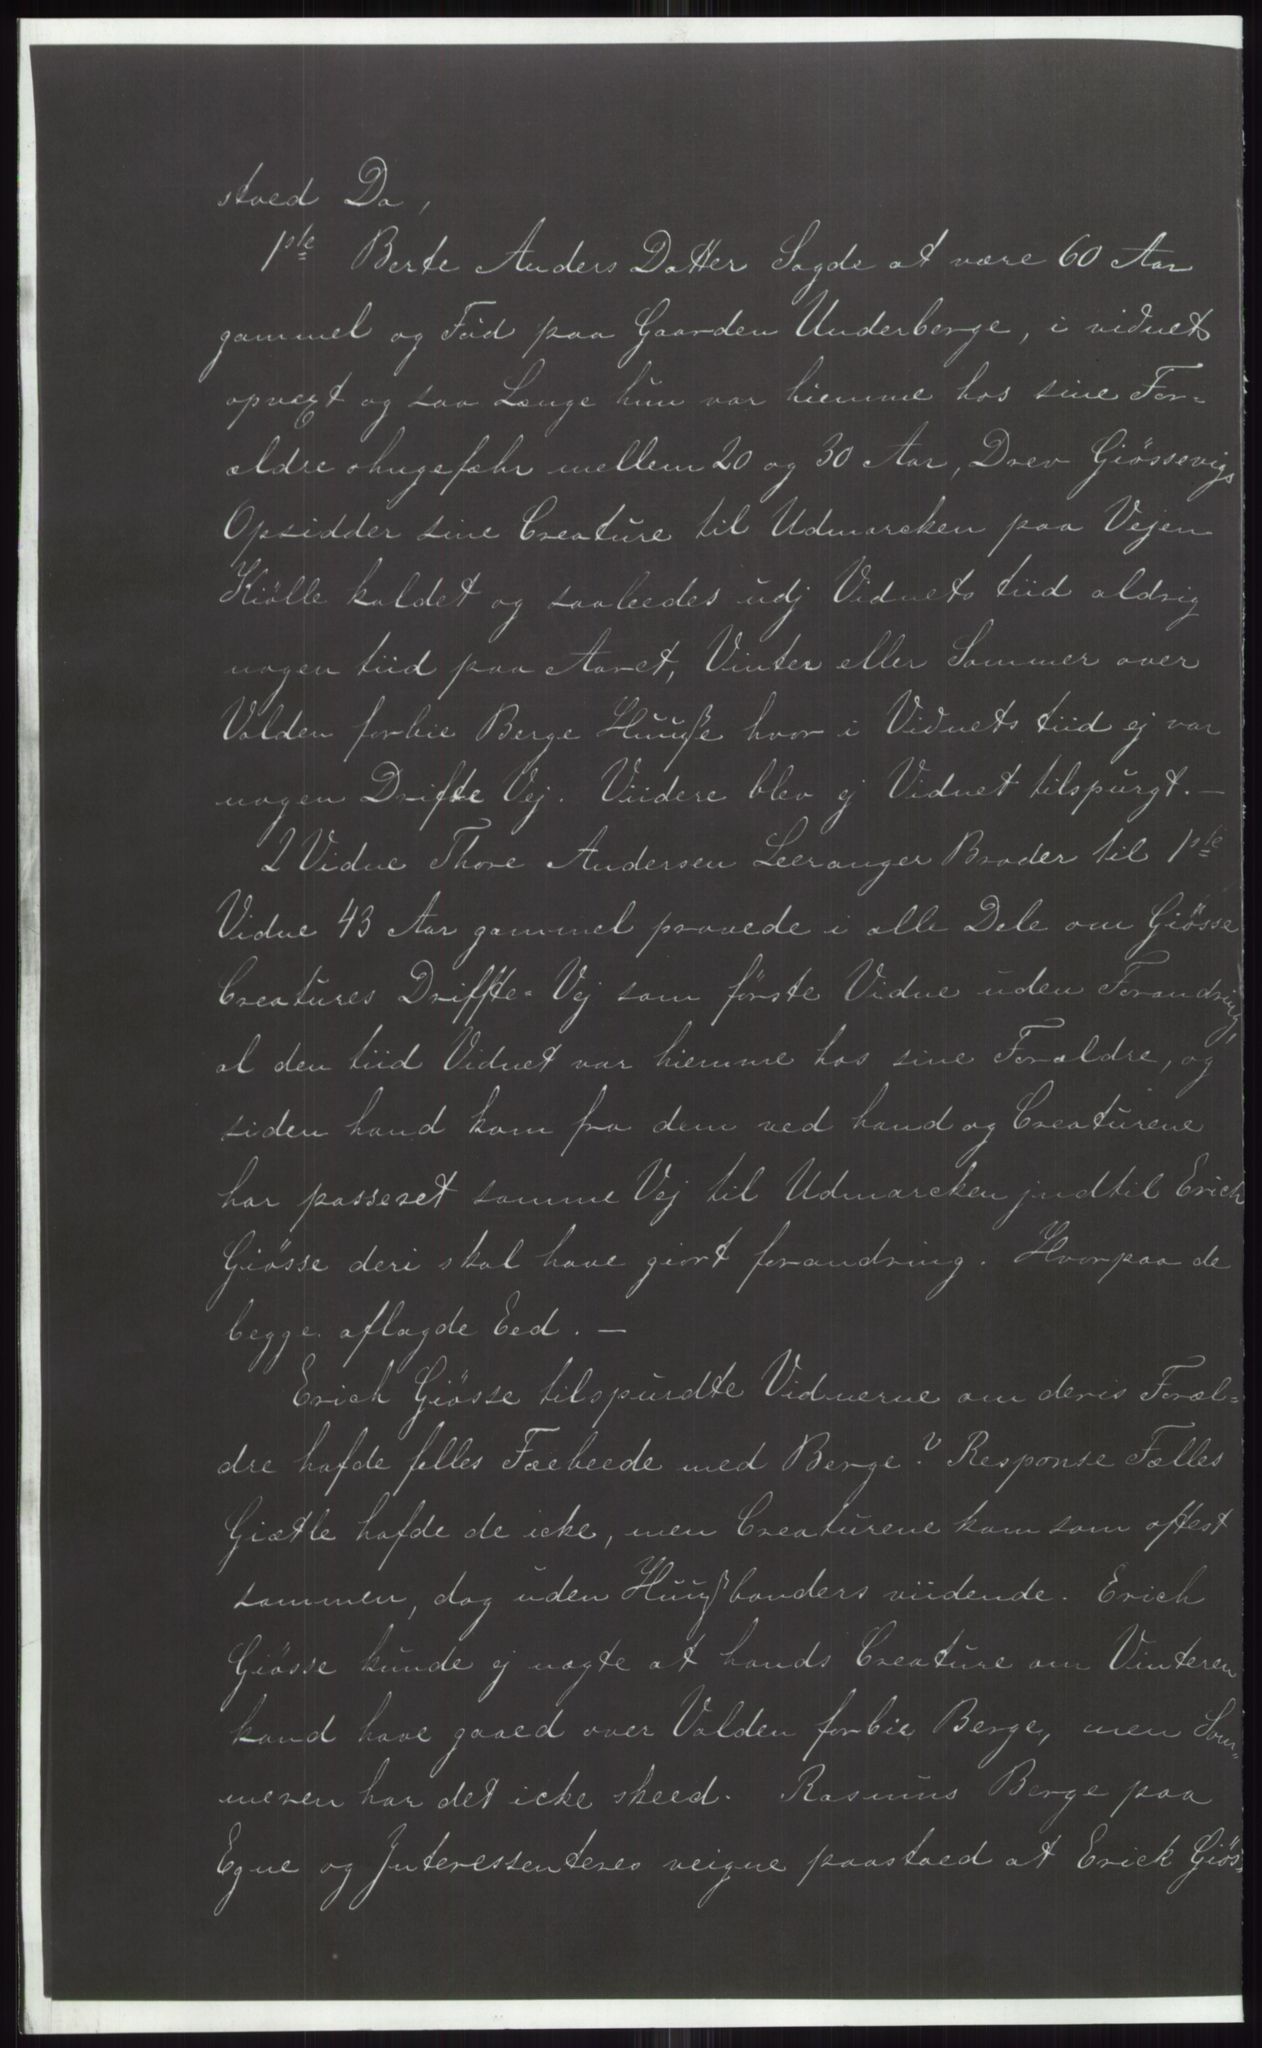 stoed Da,
1ste Berte Anders Datter Sagde at være 60 Aar
gammel og Föd paa Gaarden Underberge, i vidnets
opvext og saa Længe hun var hiemme hos sine For-
ældre ohngefæhr mellem 20 og 30 Aar, Drev Giössevigs
Opsidder sine Creature til Udmarcken paa Vejen
Kiölle kaldet og saaleedes udj Vidnets tiid aldrig
nogen tiid paa Aaret, Vinter eller Sommer over
Volden forbie Berge Huuße hvor i Vidnets tiid ej var
nogen Drifte Vej. Viidere blev ej Vidnet tilspurgt. —
2 Vidne Thore Andersen Leeranger Broder til 1ste
Vidne 43 Aar gammel provede i alle Dele om Giösse
Creatures Driffte-Vej som förste Vidne uden Forandring,
al den tiid Vidnet var hiemme hos sine Forældre, og
siden hand kom fra dem ved hand og Creaturene
har passeret samme Vej til Udmarcken jndtil Erich
Giösse deri skal have giort forandring. Hvorpaa de
begge aflagde Eed. —
Erich Giösse tilspurdte Vidnerne om deris Foræl-
dre hafde felles Fæebeede med Berge? Response Fælles
Giætle hafde de icke, men Creaturene kom som oftest
sammen, dog uden Huußbonders viidende. Erich
Giösse kunde ej nægte at hands Creature om Vinteren
kand have gaaed over Volden forbie Berge, men Som-
meren har det icke skeed. Rasmus Berge paa
Egne og Jnteressenteres veigne paastoed at Erick Giös-